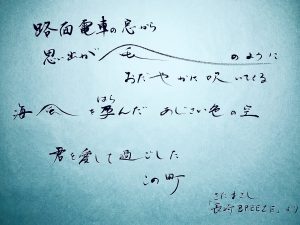 路面電車の窓から
思い出が 風 のように
おだやかに吹いてくる
海風を孕んだ あじさい色の空
はら
君を愛して過ごした
この町
さだまさし
「長崎BREEZE」より